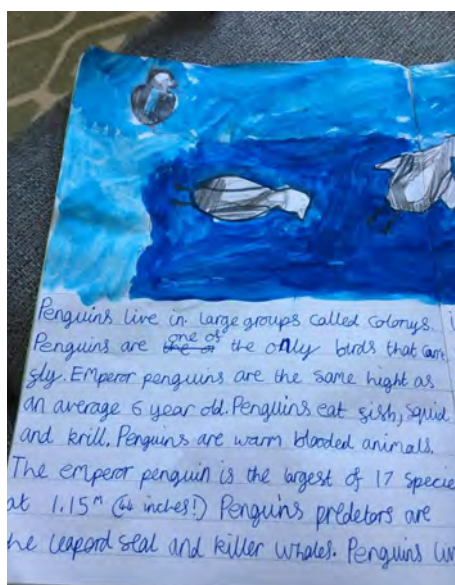 Penguins live in large groups called colonys.
Penguins are one of the only birds that cant
fly. Emperor penguins are the same hight as
an average 6 year old. Penguins eat fish, squid
and krill. Penguins are warm blooded animals.
The emperor penguin is the largest of 17 specie
at 1.15m (44 inches!) Penguins predetors are
he leapord seal and killer whales. Penguins liv